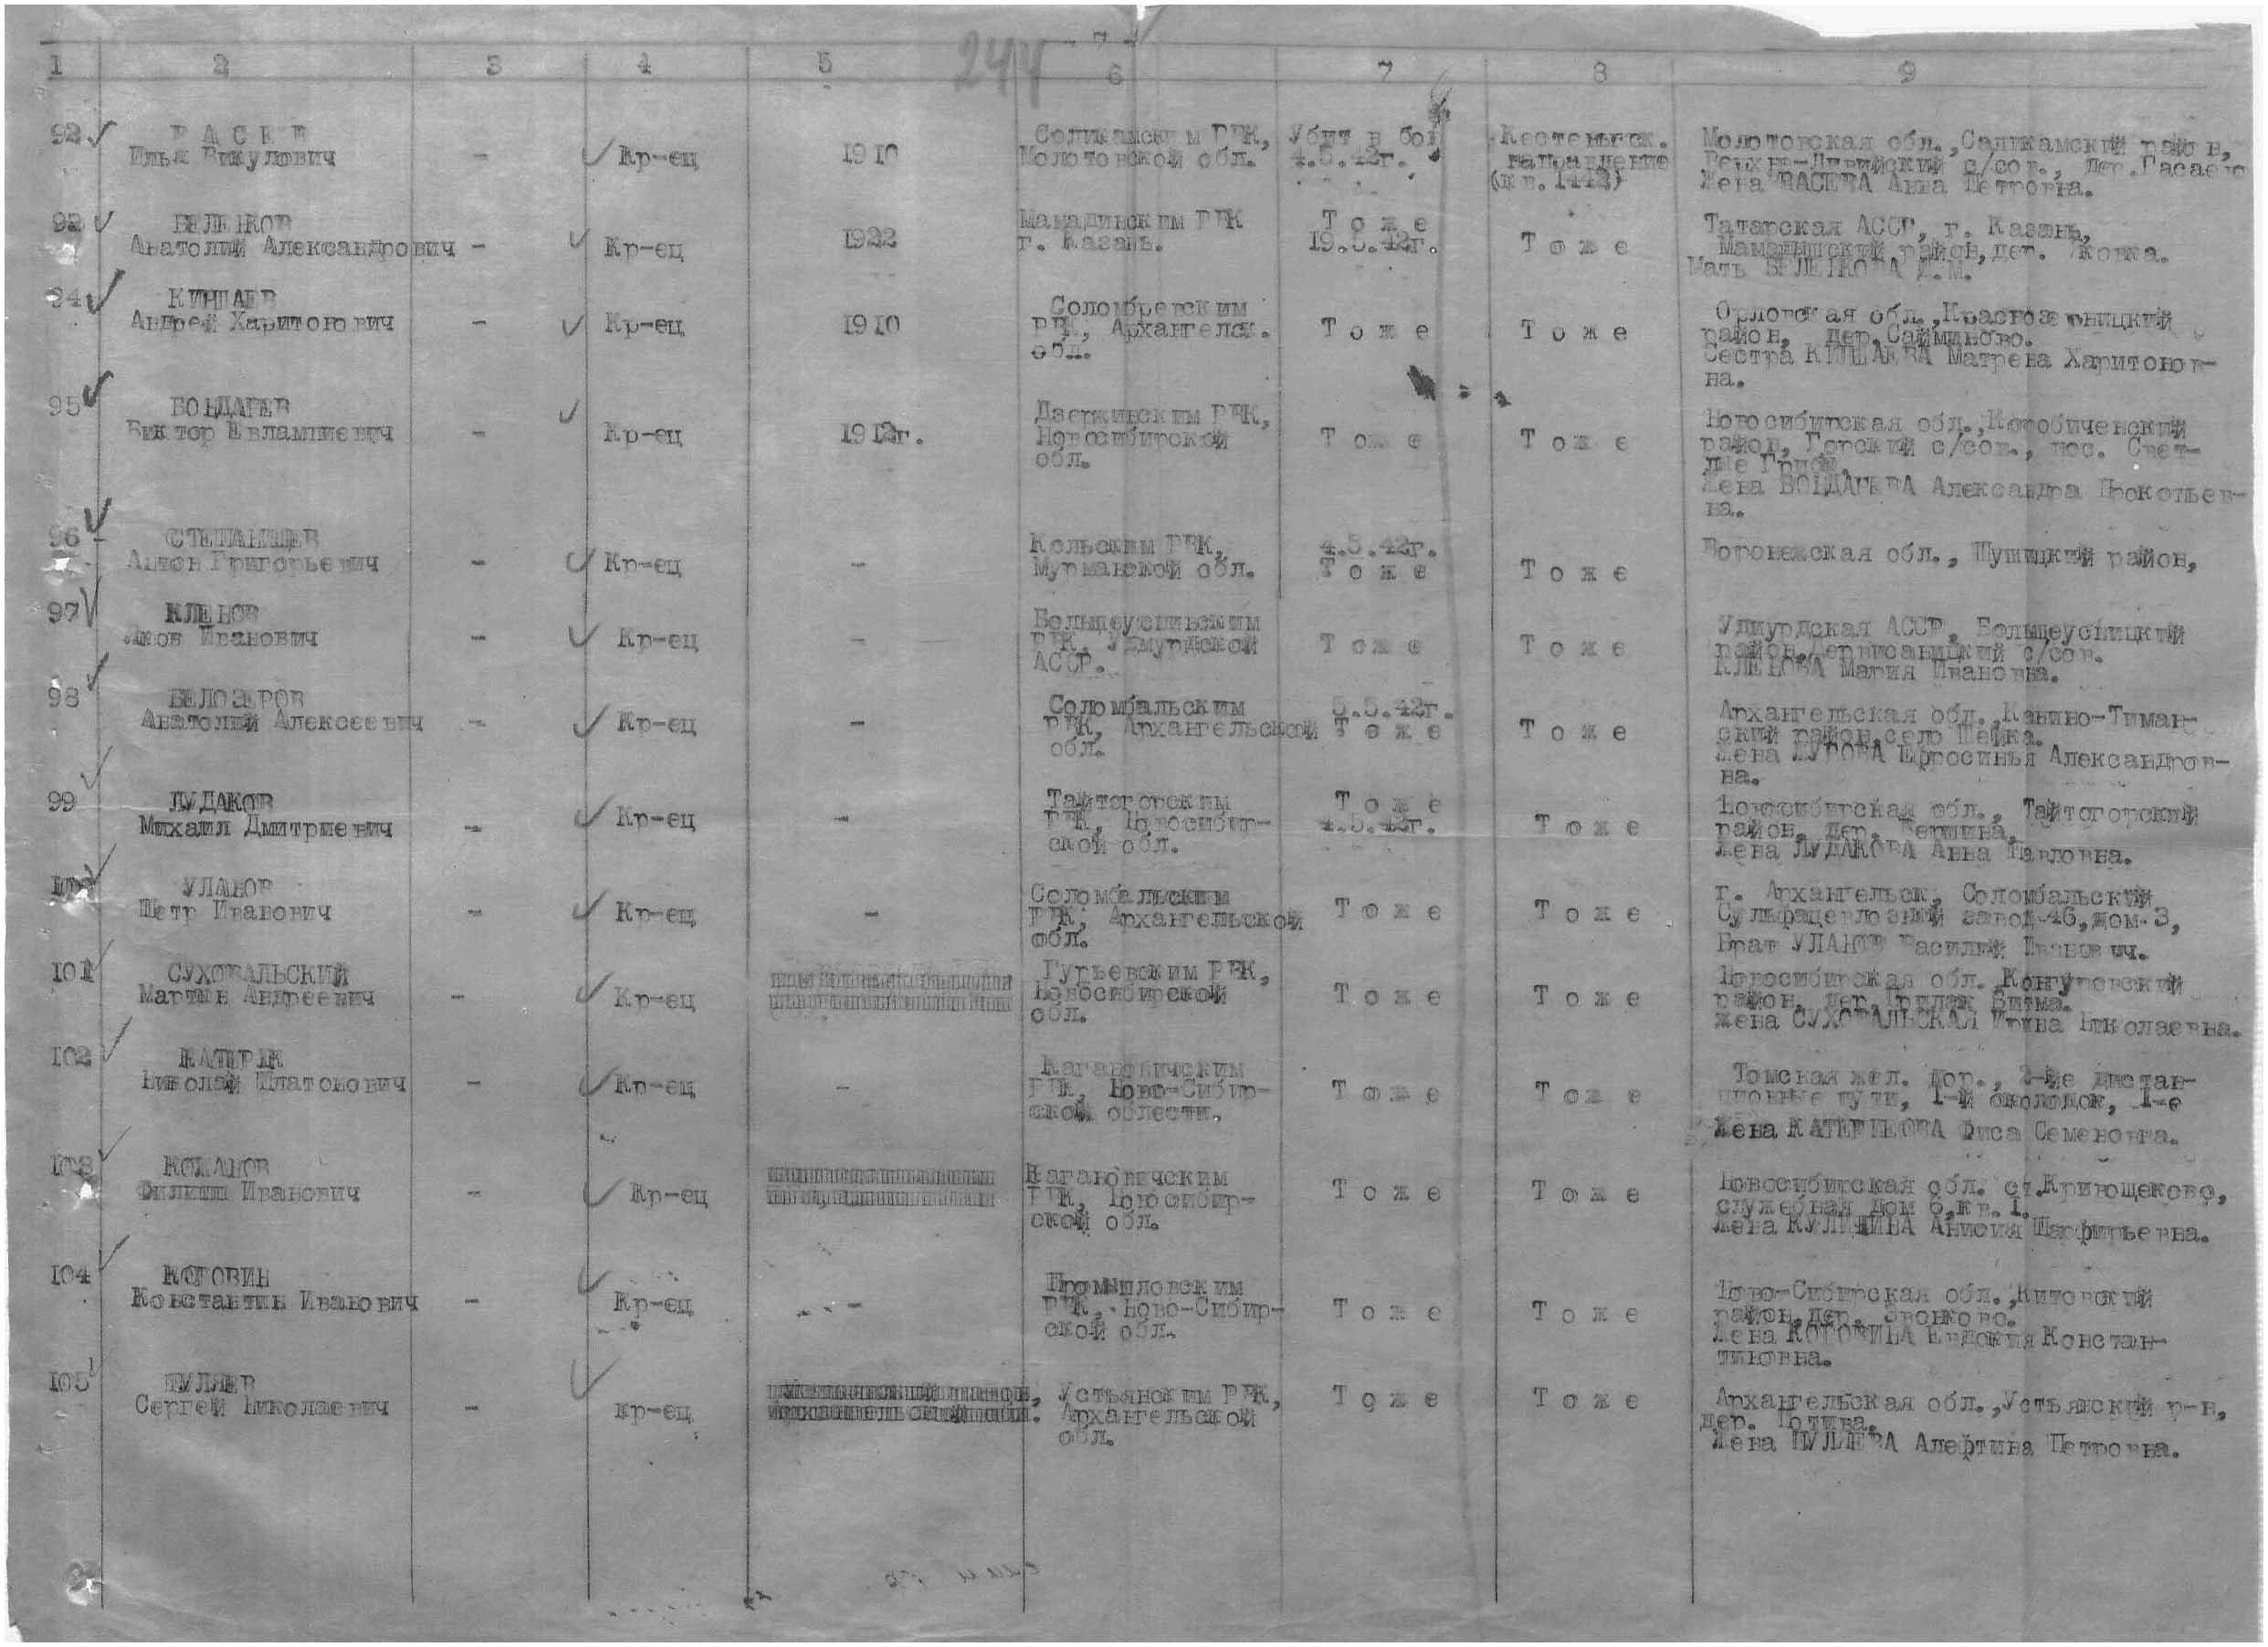 - 7 -
244
1 2 3 4 5 6 7 8 9
92
Илья Викулович - Кр-ец 1910
Соликамским РВК,
Молотовской обл.
Убит в бою
4.5.42г.
Кестеньгск.
направление
(кв. 1442)
Молотовская обл., Саликамский район,
с/сов., дер.
Жена ВАСЕВА Анна Петровна.
93 БЕЛЕНКОВ
Анатолий Александрович - Кр-ец 1922
РВК
г. Казань.
Тоже
19.5.42г.
Тоже
Татарская АССР, г. Казань,
Мамадышский район, дер.
Мать БЕЛЕНКОВА
94
Андрей Харитонович - Кр-ец 1910
Соломбревским
РВК, Архангелск.
обл.
Тоже
Тоже
Орловская обл.,
район, дер. Сайминово.
Сестра Матрена Харитонов-
на.
95 БОНДАРЕВ
Виктор Евлампиевич - Кр-ец 1912г.
Дзержинским РВК,
Новосибирской
обл.
Тоже
Тоже
Новосибирская обл.,
район, Горский с/сов., пос. Свет-
лые
Жена БОНДАРЕВА Александра Прокотьев-
на.
96 - СТЕПАНИЩЕВ
Антон Григорьевич - Кр-ец -
Кольским РВК,
Мурманской обл.
4.5.42г.
Тоже
Тоже
Воронежская обл., район,
97 КЛЕНОВ
Яков Иванович - Кр-ец -
РВК, Удмурдской
АССР.
Тоже
Тоже
Удмурдская АССР,
район, с/сов.
КЛЕНОВА Мария Ивановна.
98 БЕЛОЗЕРОВ
Анатолий Алексеевич - Кр-ец -
Соломбальским
РВК, Архангельской
обл.
5.5.42г.
Тоже
Тоже
Архангельская обл., Канино-Тиман-
ский район, село Шойна.
Жена Ефросинья Александров-
на.
99 ЛУДАКОВ
Михаил Дмитриевич - Кр-ец -
Тайтогорским
РВК, Новосибир-
ской обл.
Тоже
4.5.42г.
Тоже
Новосибирская обл., Тайтогорский
район, дер. Вершина,
Жена ЛУДАКОВА Анна Павловна.
100 УЛАНОВ
Петр Иванович - Кр-ец -
Соломбальским
РВК, Архангельской
обл.
Тоже
Тоже
г. Архангельск, Соломбальский
завод-46, дом-3,
Брат УЛАНОВ Василий Иванович.
101 СУХОВАЛЬСКИЙ
Мартын Андреевич - Кр-ец
Гурьевским РВК,
Новосибирской
обл.
Тоже
Тоже
Новосибирская обл.
район, дер.
Жена СУХОВАЛЬСКАЯ Ирина Николаевна.
102
Николай Платонович - Кр-ец -
Кагановичским
РВК, Ново-Сибир-
ской области.
Тоже
Тоже
Томская жел. дор., 2-ые дистан-
ционные пути, 1-й околодок, 1-е
Жена Фиса Семеновна.
103
Филипп Иванович - Кр-ец
Кагановичским
РВК, Новосибир-
ской обл.
Тоже
Тоже
Новосибирская обл. ст. Кривощеково,
служебная дом 6, кв. 1.
Жена Анисия Парфирьевна.
104 КОРОВИН
Константин Иванович - Кр-ец -
Промышловским
РВК, Ново-Сибир-
ской обл.
Тоже
Тоже
Ново-Сибирская обл., Китовский
район, дер. Звонково.
Жена КОРОВИНА Евдокия Констан-
тиновна.
105 ШУЛЯЕВ
Сергей Николаевич - кр-ец
Устьянским РВК,
Архангельской
обл.
Тоже
Тоже
Архангельская обл., Устьянский р-н,
дер.
Жена Алефтина Петровна.